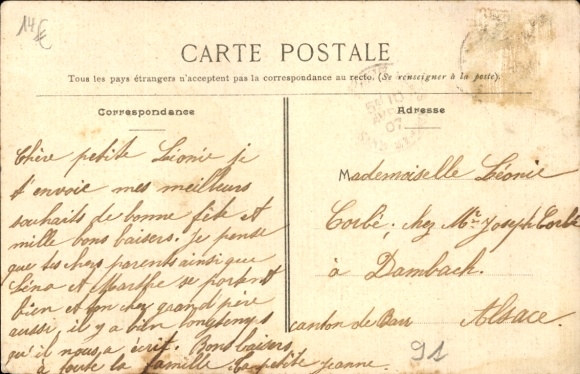 14€
CARTE POSTALE
Tous les pays étrangers n'acceptent pas la correspondance au recto. (Se renseigner à la poste).
Correspondance
Chère petite Léonie je
t'envoie mes meilleurs
souhaits de bonne fête et
mille bons baisers. Je pense
que tes chers parents ainsi que
Léna et Marthe se portent
bien et ton cher grand père
aussi, il y a bien longtemps
qu'il nous a écrit. Bons baisers
à toute la famille Ta petite Jeanne.
Adresse
Mademoiselle Léonie
Corbé, chez Mr Joseph Corbé
à Dambach.
canton de Barr Alsace.
91
07